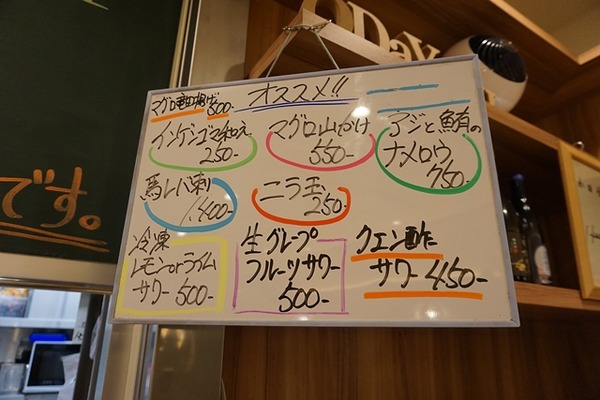 ODaY
オススメ!!
マグロ竜田揚げ 500-
インゲンゴマ和え
250-
マグロ山かけ
550-
アジと鮪の
ナメロウ
750-
馬レバ刺
1,400-
ニラ玉
250-
冷凍
レモンorライム
サワー 500-
生グレープ
フルーツサワー
500-
クエン酸
サワー 450-
です。